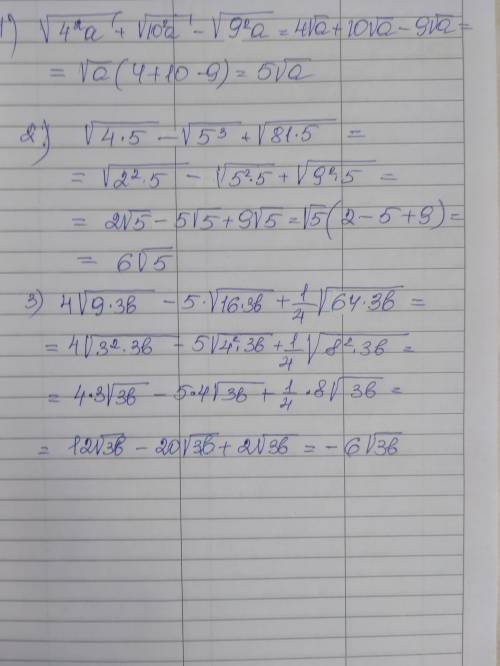 1) √4²a + √10²a - √9²a = 4√a + 10√a - 9√a =
= √a (4+10-9) = 5√a
2) √4·5 - √5³ + √81·5 =
= √2²·5 - √5²·5 + √9²·5 =
= 2√5 - 5√5 + 9√5 = √5 (2-5+9) =
= 6√5
3) 4√9·3в - 5·√16·3в + 1/4 √64·3в =
= 4√3²·3в - 5√4²·3в + 1/4 √8²·3в =
= 4·3√3в - 5·4√3в + 1/4 ·8√3в =
= 12√3в - 20√3в + 2√3в = -6√3в